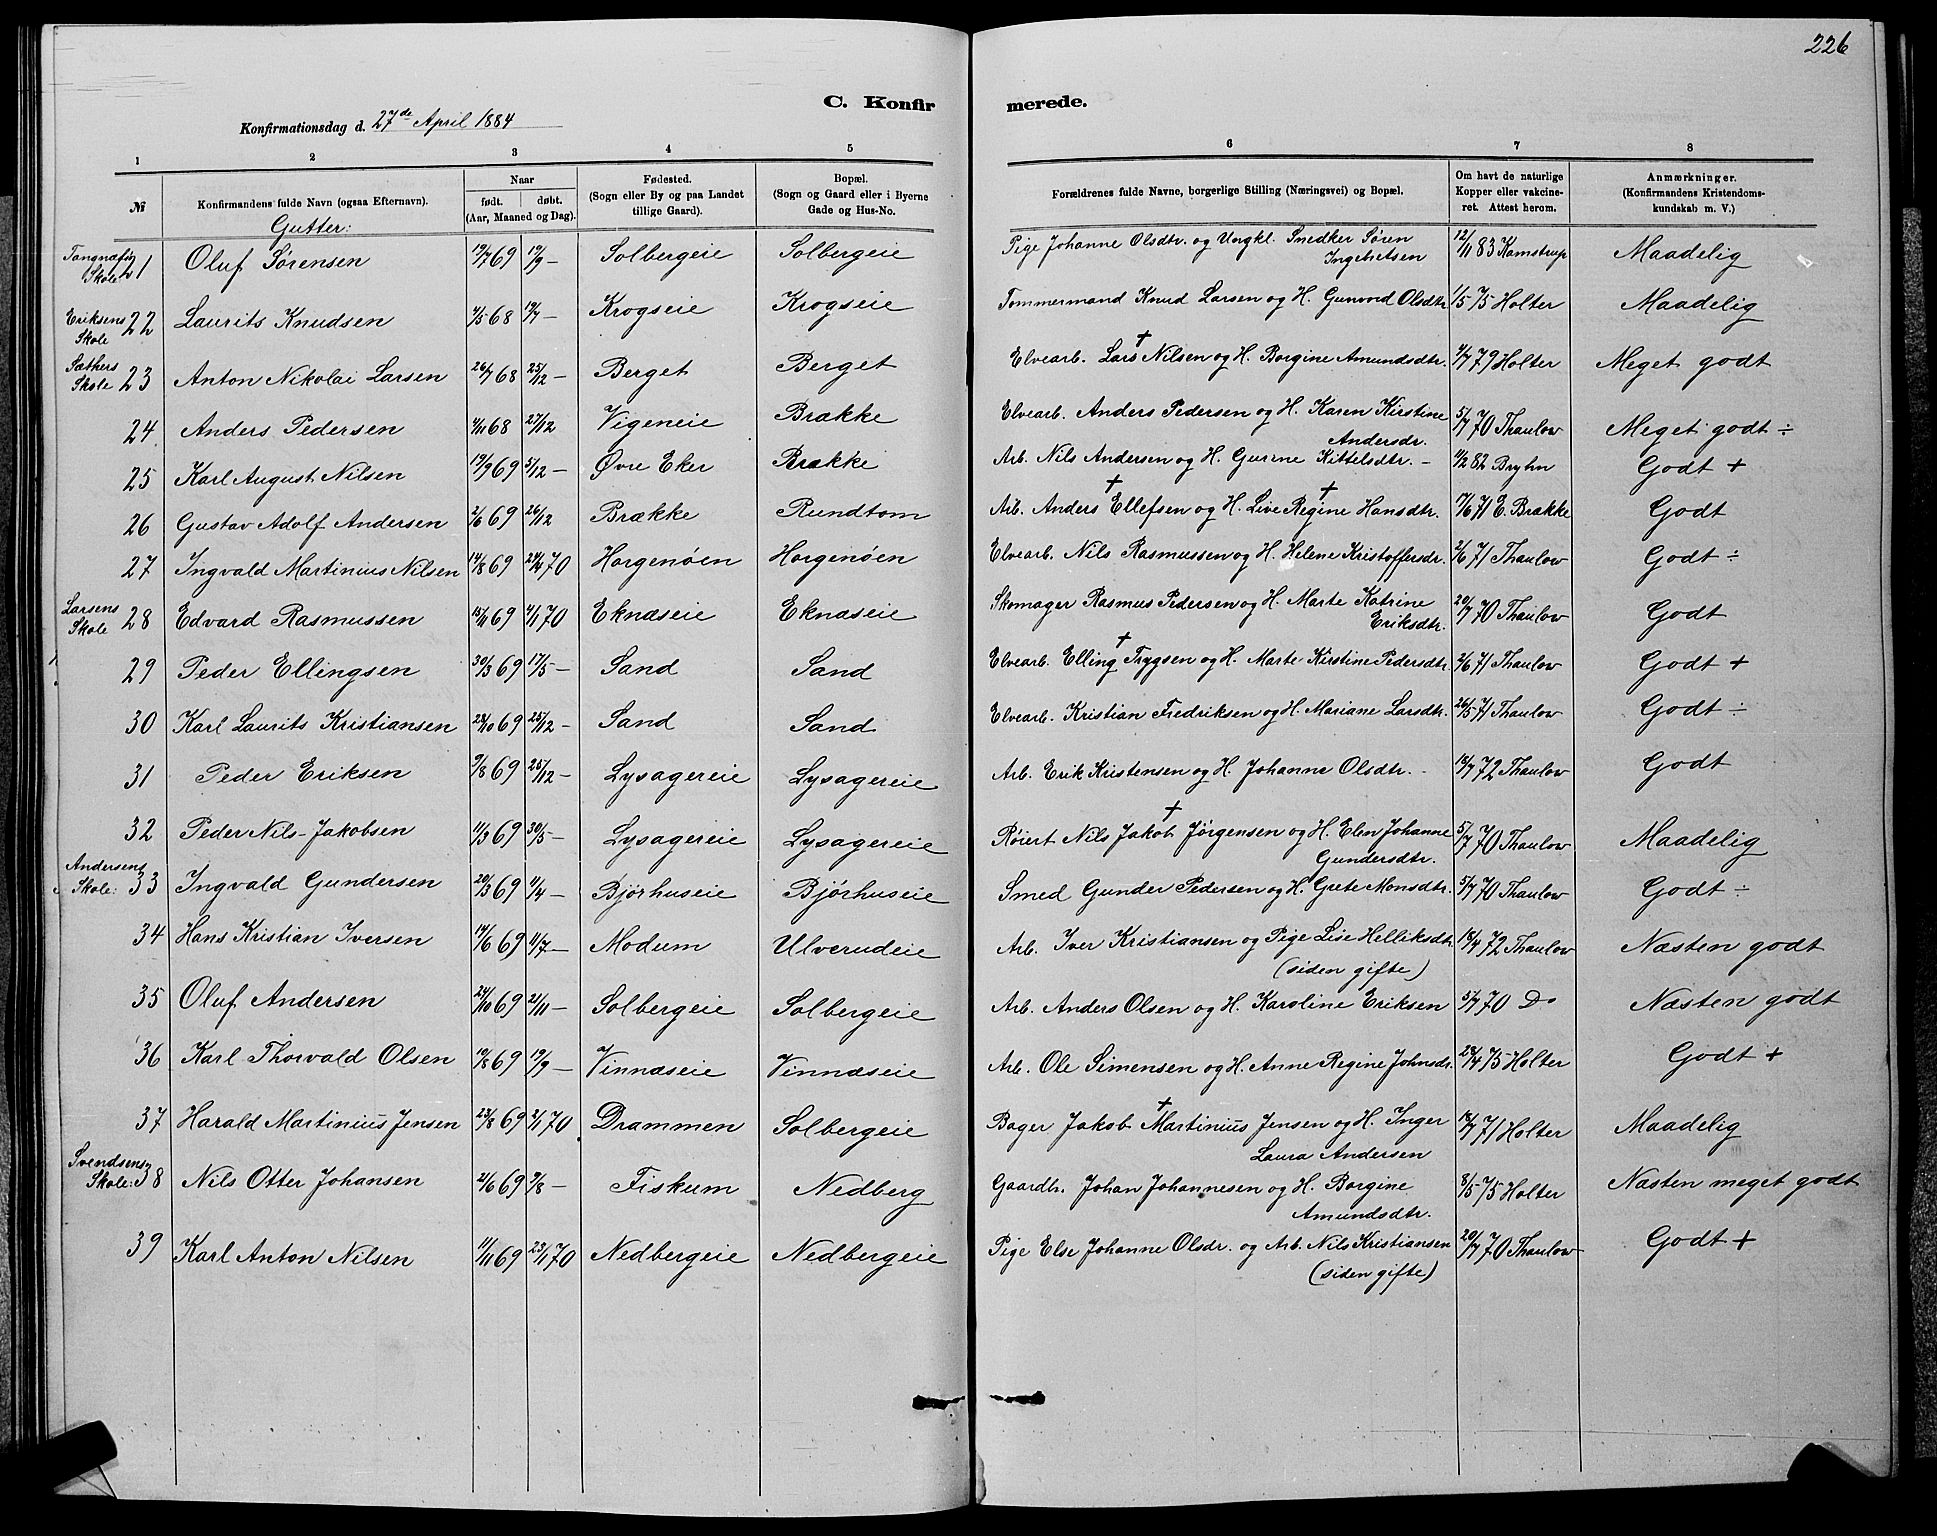 226
C. Konfirmerede.
Konfirmationsdag d. 27de April 1884
1 2 3 4 5 6 7 8
№
Konfirmandens fulde Navn (ogsaa Efternavn).
Naar
født. døbt.
(Aar, Maaned og Dag).
Fødested.
(Sogn eller By og paa Landet
tillige Gaard).
Bopæl.
(Sogn og Gaard eller i Byerne
Gade og Hus-No.
Forældrenes fulde Navne, borgerlige Stilling (Næringsvei) og Bopæl.
Om havt de naturlige
Kopper eller vakcine-
ret. Attest herom.
Anmærkninger.
(Konfirmandens Kristendoms-
kundskab m. V.)
Gutter:
Skole 21 Oluf Sørensen 19/7 69 19/9 – Solbergeie Solbergeie Pige Johanne Olsdtr. og Ungkl. Snedker Søren 12/11 83 Kamstrup Maadelig
Eriksens Skole 22 Laurits Knudsen 4/5 68 19/7 – Krogseie Krogseie Tommermand Knud Larsen og H. Gunvord Olsdtr 1/5 75 Holter Maadelig
Sæthers Skole 23 Anton Nikolai Larsen 26/7 68 25/12 – Berget Berget Elvearb. Lars † Nilsen og H. Borgine Amundsdtr. 4/7 79 Holter Meget godt
24 Anders Pedersen 4/11 68 27/12 Vigeneie Brække Elvearb. Anders Pedersen og H. Karen Kirstine Andersdr. 5/7 70 Thaulow Meget godt ÷
25 Karl August Nilsen 19/9 69 5/12 – Øvre Eker Brække Arb. Nils Andersen og H. Gurine Kittelsdtr. – 11/2 82 Bryhn Godt +
26 Gustav Adolf Andersen 2/6 69 26/12 Brække Rundtom Arb. Anders † Ellefsen og H. Live Regine † Hansdtr. 17/6 71 E. Brække Godt
27 Ingvald Martinius Nilsen 14/8 69 24/4 70 Horgenöen Horgenöen Elvearb. Nils Rasmussen og H. Helene Kristoffersdr. 2/6 71 Thaulow Godt ÷
Larsens Skole 28 Edvard Rasmussen 15/11 69 4/1 70 Eknæseie Eknæseie Skomager Rasmus Pedersen og H. Marte Katrine Eriksdtr. 20/7 70 Thaulow Godt
29 Peder Ellingsen 30/3 69 17/5 – Sand Sand Elvearb. Elling † Trygsen og H. Marte Kirstine Pedersdtr. 2/6 71 Thaulow Godt +
30 Karl Laurits Kristiansen 23/10 69 25/12 – Sand Sand Elvearb. Kristian Fredriksen og H. Mariane Larsdtr. 26/5 71 Thaulow Godt ÷
31 Peder Eriksen 9/8 69 25/12 – Lysagereie Lysagereie Arb. Erik Kristensen og H. Johanne Olsdtr. – 18/7 72 Thaulow Godt
32 Peder Nils-Jakobsen 11/3 69 30/5 – Lysagereie Lysagereie Røiert Nils Jakob † Jørgensen og H. Elen Johanne Gundersdtr. 5/7 70 Thaulow Maadelig
Andersens Skole: 33 Ingvald Gundersen 20/3 69 11/4 – Bjørhuseie Bjørhuseie Smed Gunder Pedersen og H. Grete Monsdtr. 5/7 70 Thaulow Godt ÷
34 Hans Kristian Iversen 14/6 69 11/7 – Modum Ulverudeie Arb. Iver Kristiansen og Pige Lise Helliksdtr (siden gifte) 18/4 72 Thaulow Næsten godt
35 Oluf Andersen 24/10 69 21/11 – Solbergeie Solbergeie Arb. Anders Olsen og H. Karoline Eriksen 5/7 70 Do Næsten godt
36 Karl Thorvald Olsen 19/8 69 19/9 – Vinnæseie Vinnæseie Arb. Ole Simensen og H. Anne Regine Johnsdr. 28/4 75 Holter Godt +
37 Harald Martinius Jensen 23/8 69 2/1 70 Drammen Solbergeie Bager Jakob † Martinius Jensen og H. Inger Laura Andersen 18/7 71 Holter Maadelig
Svendsens Skole: 38 Nils Otter Johansen 2/6 69 9/8 – Fiskum Nedberg Gaardb. Johan Johannesen og H. Borgine Amundsdtr. 8/5 75 Holter Næsten meget godt
39 Karl Anton Nilsen 11/11 69 23/1 70 Nedbergeie Nedbergeie Pige Else Johanne Olsdr. og Arb. Nils Kristiansen (siden gifte) 20/7 70 Thaulow Godt +